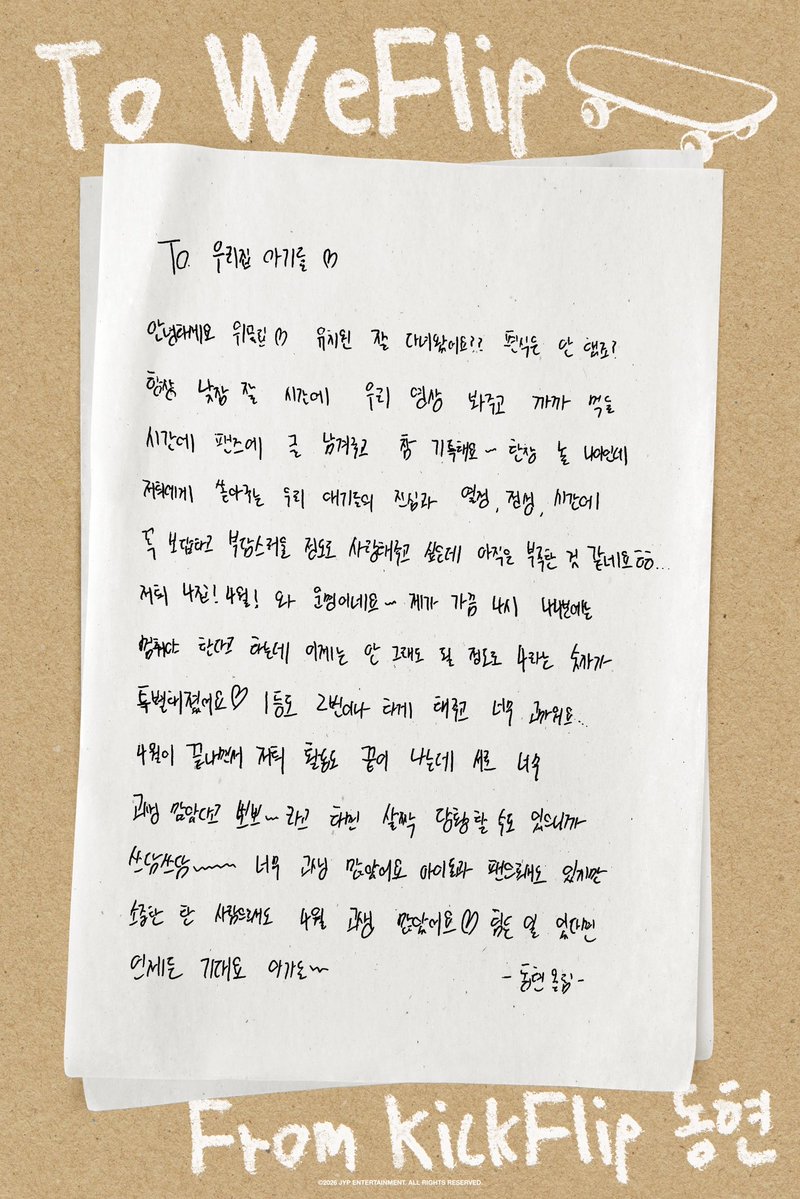 To WeFlip
To. 우리집 아기들 ♡
안녕하세요 위플립♡ 유치원 잘 다녀왔어요?? 편식은 안 했죠?
항상 낮잠 잘 시간에 우리 영상 봐주고 까까 먹을
시간에 팬즈에 글 남겨주고 참 기특해요~ 한창 놀 나이인데
저희에게 쏟아주는 우리 애기들의 진심과 열정, 정성, 시간에
꼭 보답하고 부담스러울 정도로 사랑해주고 싶은데 아직은 부족한 것 같네요ㅎㅎ...
저희 4집! 4월! 와 운명이네요~ 제가 가끔 4시 44분에는
멈춰야 한다고 하는데 이제는 안 그래도 될 정도로 4라는 숫자가
특별해졌어요♡ 1등도 2번이나 하게 해주고 너무 고마워요..
4월이 끝나면서 저희 활동도 끝이 나는데 서로 너무
고생 많았다고 뽀뽀~ 라고 하면 살짝 당황할 수도 있으니까
쓰담쓰담~~~~ 너무 고생 많았어요 아이돌과 팬으로서도 있지만
소중한 한 사람으로서도 4월 고생 많았어요♡ 힘든 일 있다면
언제든 기대요 아가들~
- 동현 올림 -
From KickFlip 동현
©2026 JYP ENTERTAINMENT. ALL RIGHTS RESERVED.